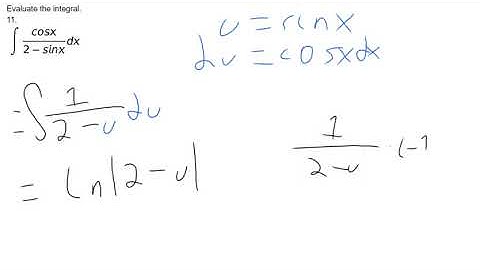 Evaluate the integral.
11.
∫ cosx / 2 − sinx dx
u = sinx
du = cosxdx
= ∫ 1 / 2 − u du
= ln|2 − u|
1 / 2 − u · (−1